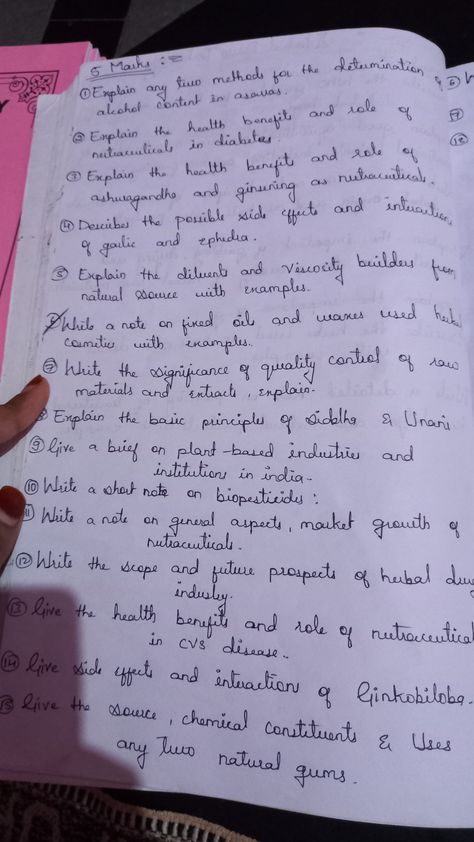 5 Marks :-
① Explain any two methods for the determination of
alcohol content in asavas.
② Explain the health benefit and role of
nutraceuticals in diabetes.
③ Explain the health benefit and role of
ashwagandha and ginseng as nutraceuticals.
④ Describe the possible side effects and interaction
of garlic and ephedra.
⑤ Explain the diluents and viscosity builders from
natural source with examples.
Write a note on fixed oils and waxes used herbal
cosmetic with examples.
⑦ Write the significance of quality control of raw
materials and extracts, explain.
8 Explain the basic principles of Siddha & Unani
⑨ Give a brief on plant-based industries and
institution in india.
⑩ Write a short note on biopesticides :
11 Write a note on general aspects, market growth of
nutraceuticals.
⑫ Write the scope and future prospects of herbal drug
industry.
⑬ Give the health benefits and role of nutraceutical
in CVS disease..
⑭ Give side effects and interaction of Ginkobiloba.
15 Give the source, chemical constituents & Uses
any two natural gums.
⑰
⑱